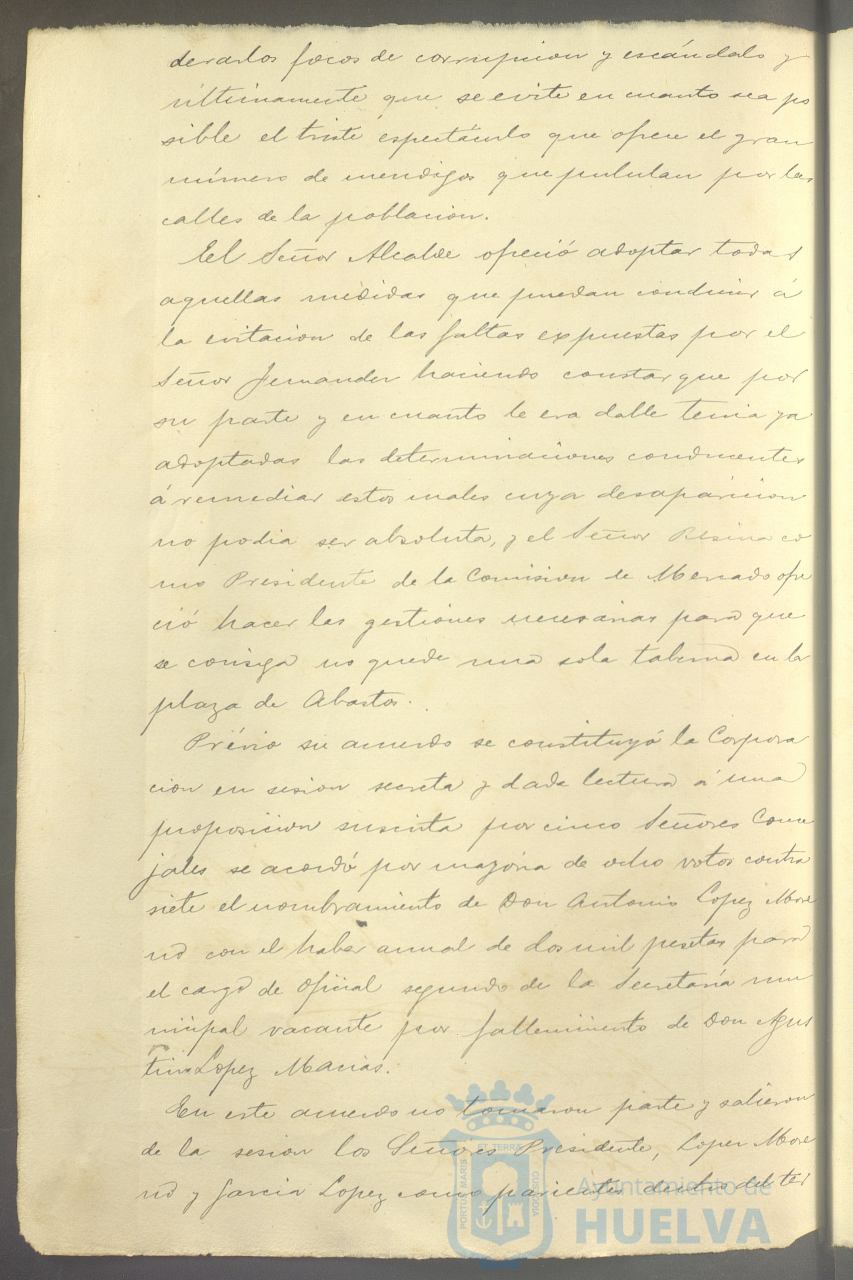 derarlos focos de corrupcion y escándalo y
ultimamente que se evite en cuanto sea po
sible el triste espectáculo que ofrece el gran
número de mendigos que pululan por las
calles de la poblacion.
El Señor Alcalde ofreció adoptar todas
aquellas medidas que puedan conducir á
la evitacion de las faltas expuestas por el
Señor Fernandez haciendo constar que por
su parte y en cuanto le era dable tenia ya
adoptadas las determinaciones conducentes
á remediar estos males cuya desaparicion
no podia ser absoluta, y el Señor Resina co
mo Presidente de la Comision de Mercado ofre
ció hacer las gestiones necesarias para que
se consiga no quede una sola taberna en la
plaza de Abastos.
Prévio su acuerdo se constituyó la Corpora
cion en sesion secreta y dada lectura á una
proposicion suscrita por cinco Señores Conce
jales se acordó por mayoria de ocho votos contra
siete el nombramiento de Don Antonio Lopez More
no con el haber anual de dos mil pesetas para
el cargo de oficial segundo de la Secretaría mu
nicipal vacante por fallecimiento de Don Agus
tin Lopez Macias.
En este acuerdo no tomaron parte y salieron
de la sesion los Señores Presidente, Lopez More
no y Garcia Lopez como parientes dentro del ter
PORTUS MARIS ET TERRAE CUSTODIA
Ayuntamiento de
HUELVA